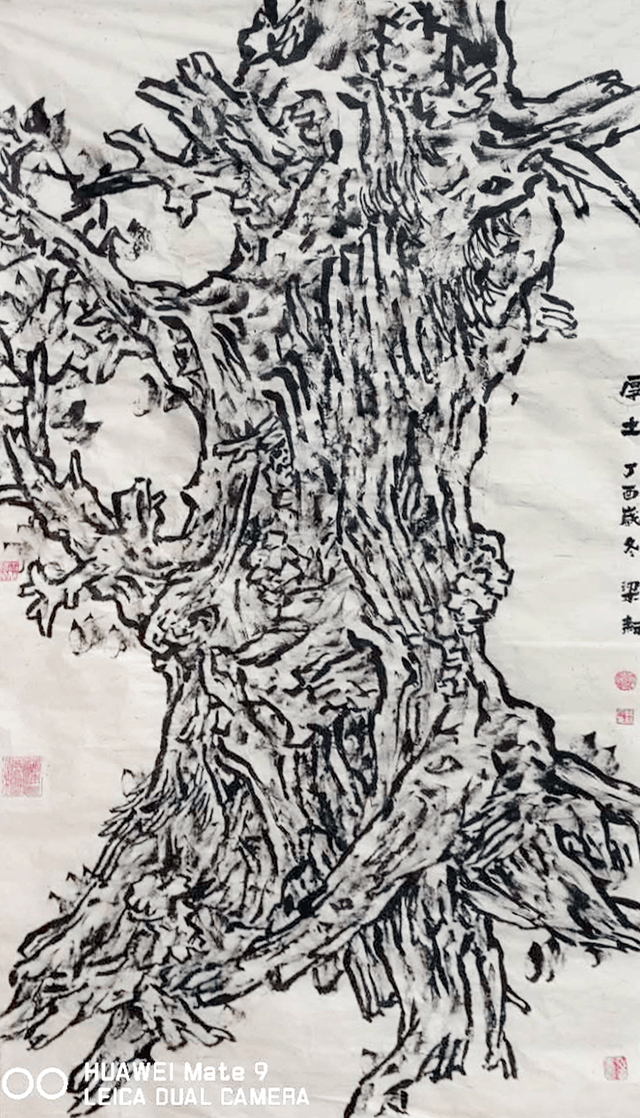 厚土 丁酉岁冬 梁耘
HUAWEI Mate 9
LEICA DUAL CAMERA